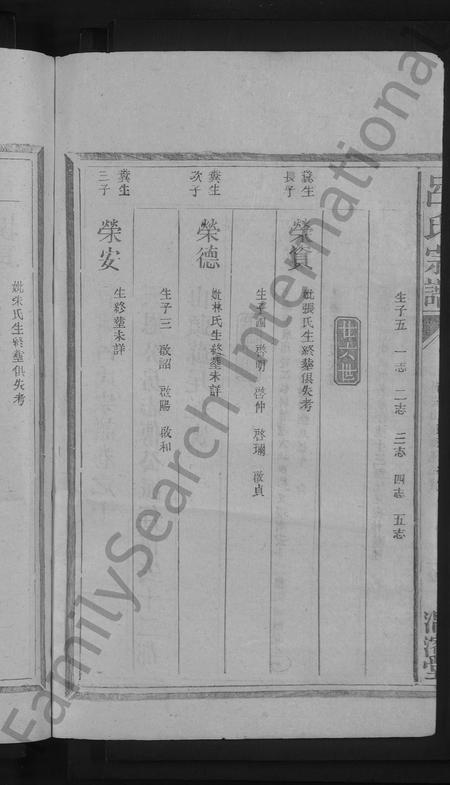 呂氏宗譜
生子五 一志 二志 三志 四志 五志
廿六世
生長子
榮貧
妣張氏生終墓俱失考
生子四 啓明 啓仲 啓瑞 啟貞
糞生次子
榮德
妣林氏生終墓未詳
生子三 啟詔 啟陽 啟和
糞生三子
榮安
生終墓未詳
妣朱氏生終墓俱失考
FamilySearch International